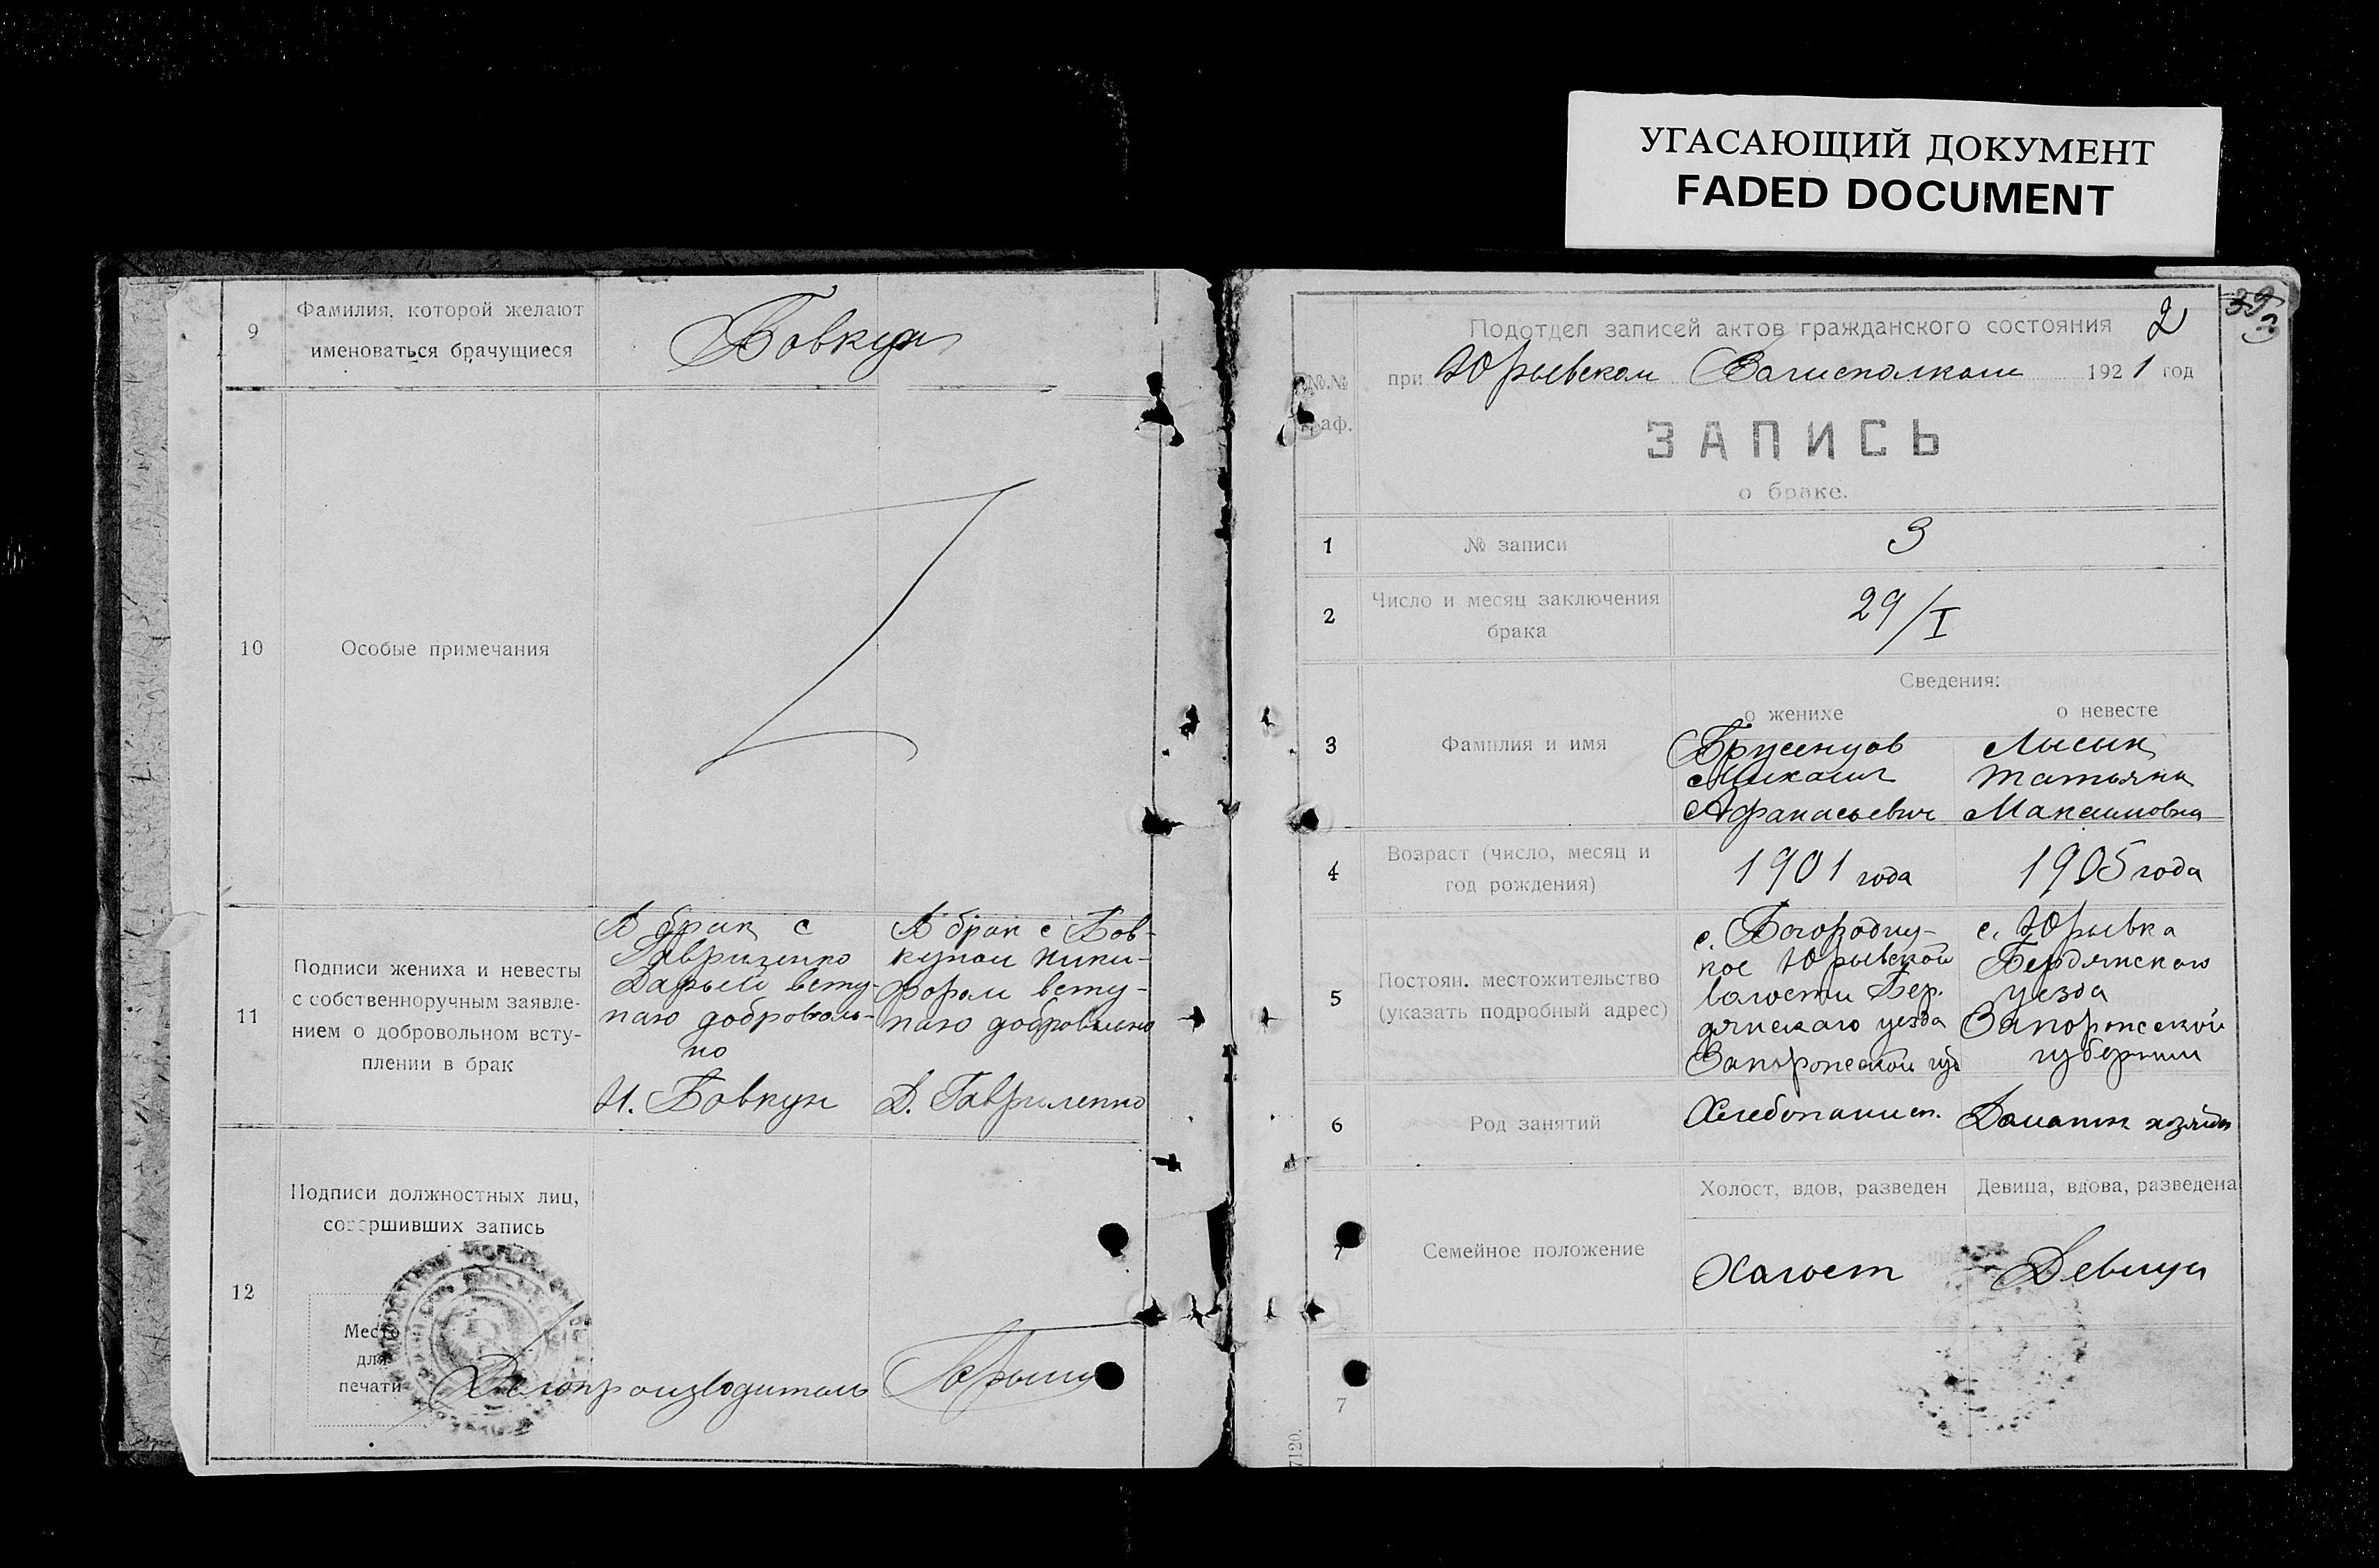 УГАСАЮЩИЙ ДОКУМЕНТ
FADED DOCUMENT
9
Фамилия, которой желают
именоваться брачущиеся
Бовкун
10
Особые примечания
11
Подписи жениха и невесты
с собственноручным заявле-
нием о добровольном всту-
плении в брак
В брак с
Гавриленко
Дарьей всту-
паю доброволь-
но
И. Бовкун
В брак с Бов-
куном Ники-
фором всту-
паю добровольно
Д. Гавриленко
12
Подписи должностных лиц,
совершивших запись
Место
для
печати
Делопроизводитель
2
Подотдел записей актов гражданского состояния
№№
граф.
при Юрьевском Волисполкоме 1921 год
ЗАПИСЬ
о браке.
1
№ записи
3
2
Число и месяц заключения
брака
29/I
Сведения:
о женихе
о невесте
3
Фамилия и имя
Брусенцов
Михаил
Афанасьевич
Лысик
Татьяна
Максимовна
4
Возраст (число, месяц и
год рождения)
1901 года
1905 года
5
Постоян. местожительство
(указать подробный адрес)
с. Богородиц-
кое Юрьевской
волости Бер-
дянского уезда
Запорожской губ
с. Юрьевка
Бердянского
уезда
Запорожской
губернии
6
Род занятий
Хлебопашец.
Домашн хозяйка
7
Семейное положение
Холост, вдов, разведен
Девица, вдова, разведена
Холост
Девица
7
7120.